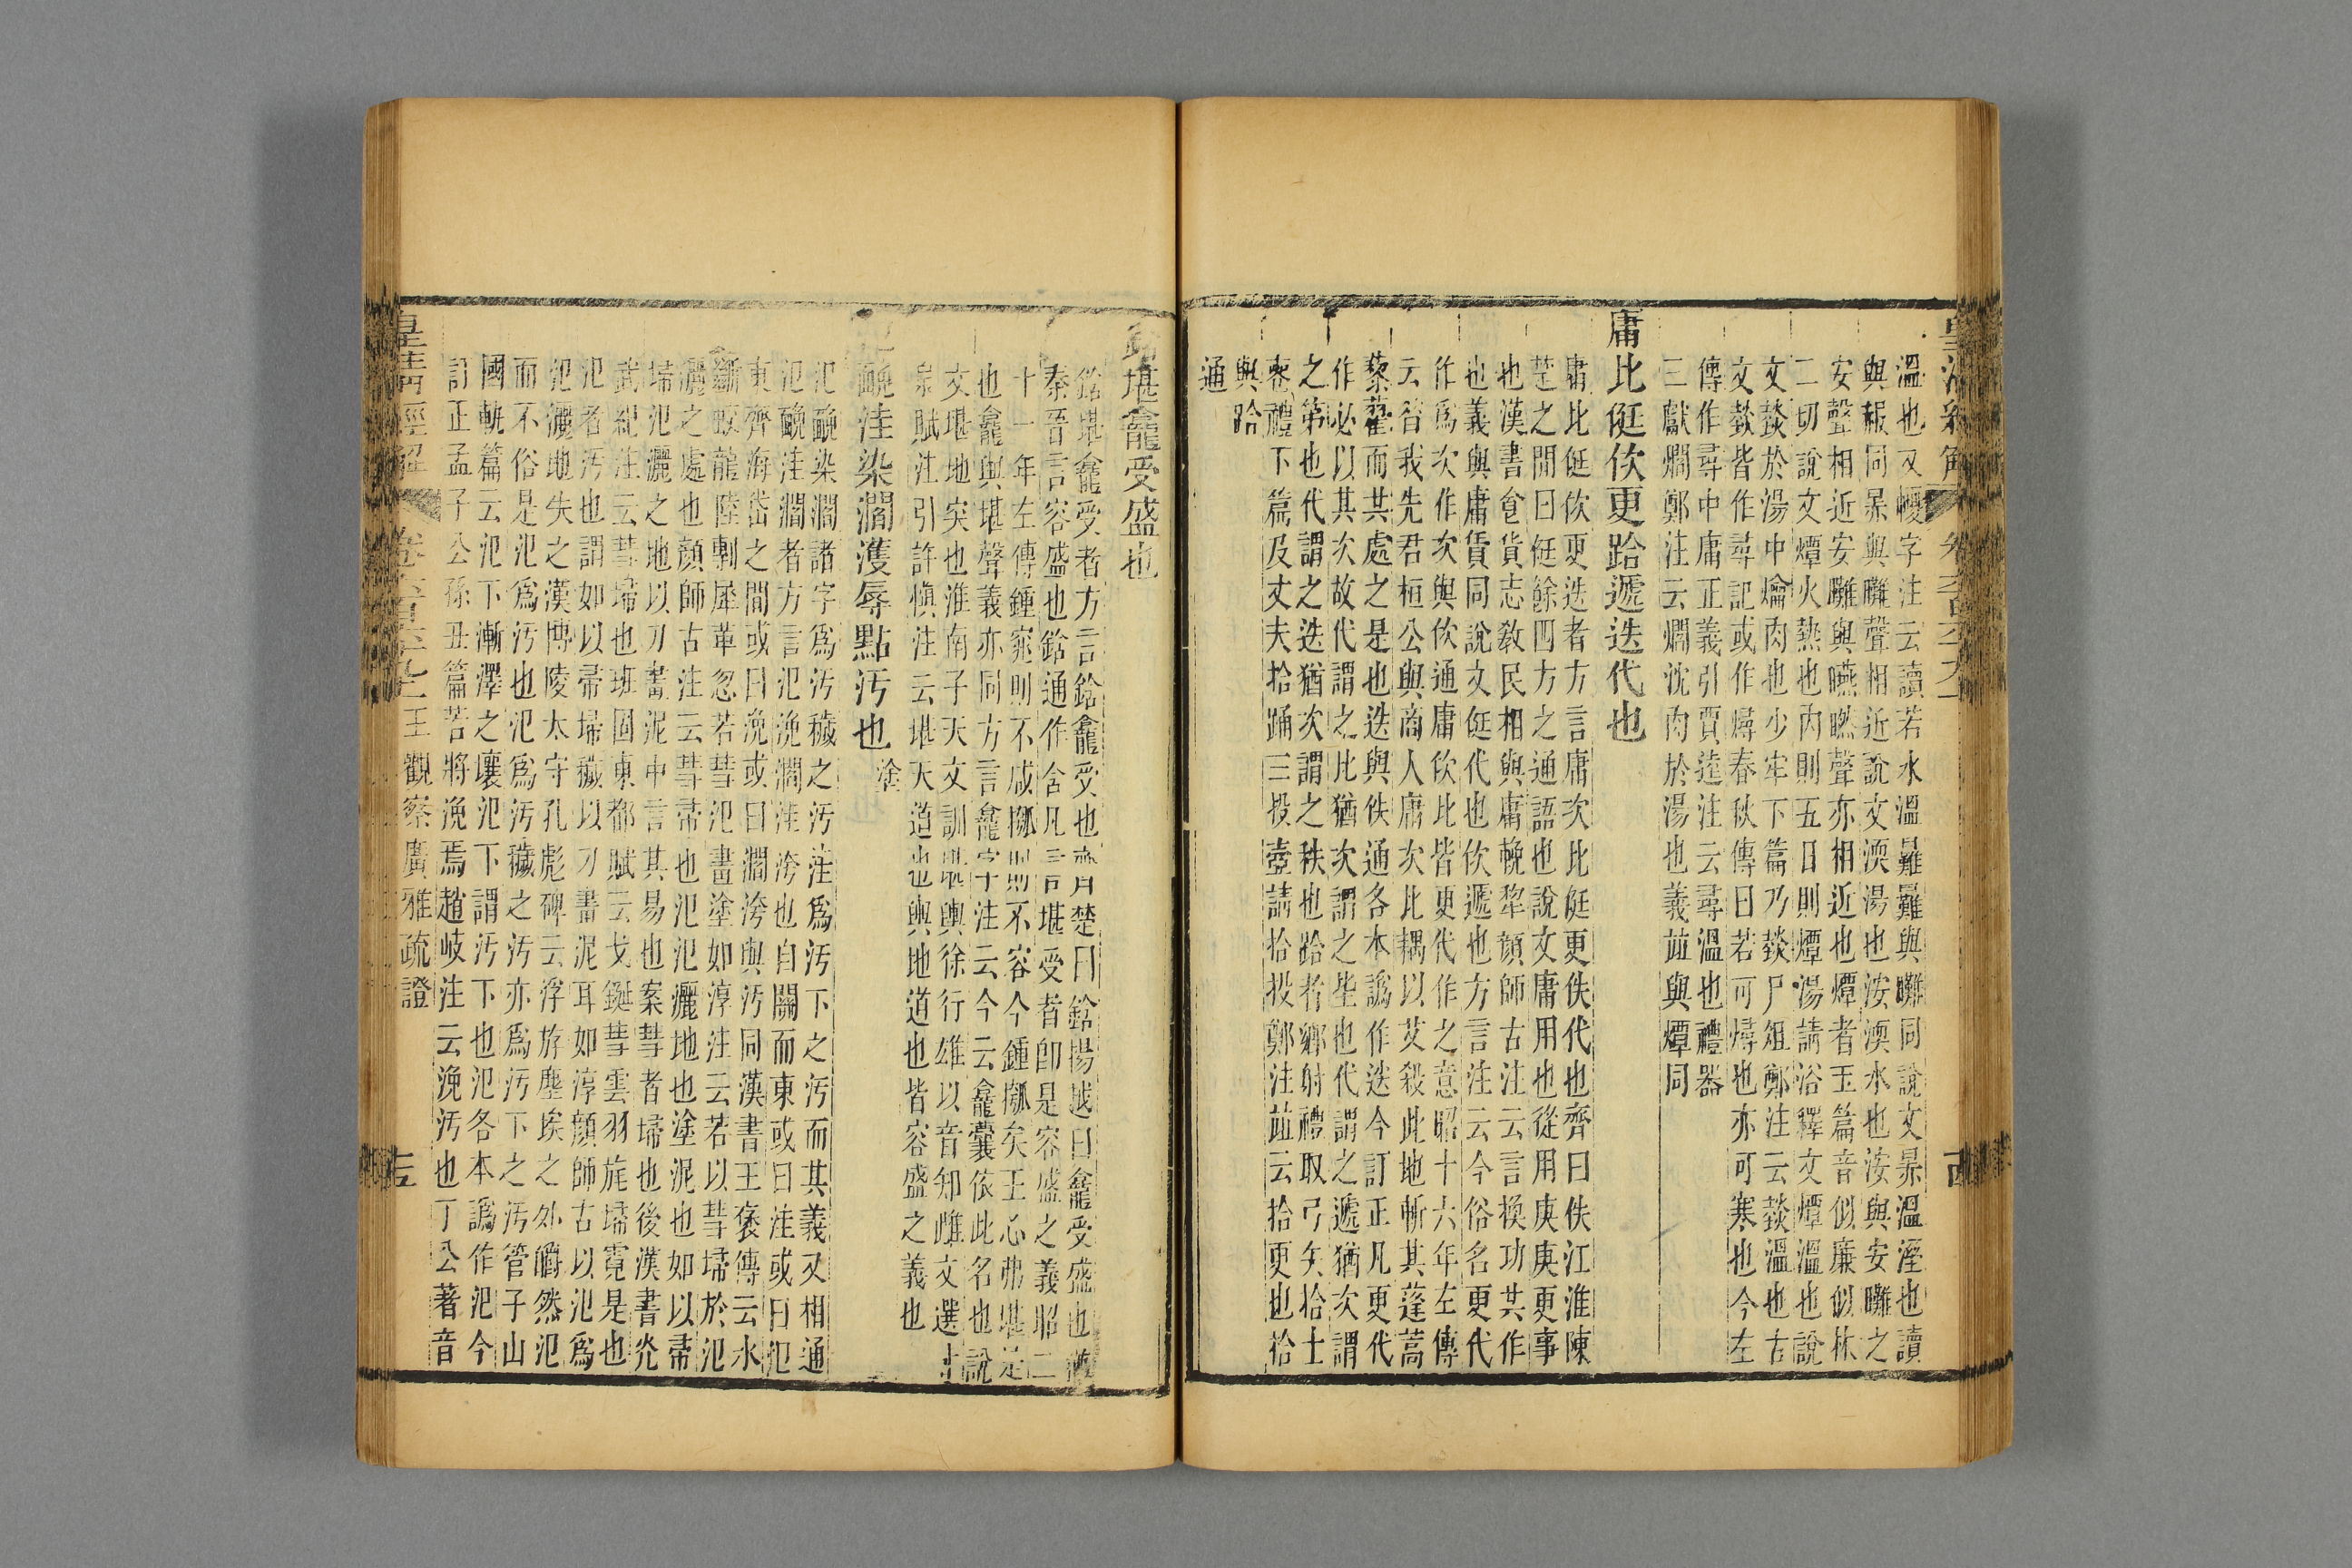 溫也又㬉字注云讀若水溫㬮㬮與㬮同說文㬈溫溼也讀
與赧同㬈與㬮聲相近說文渜湯也洝渜水也洝與安㬮之
安聲相近安㬮與曣㬗聲亦相近也燂者玉篇音似廉似林
二切說文燂火熱也內則五日則燂湯請浴釋文燂溫也說
文燅於湯中爚肉也少牢下篇乃燅尸俎鄭注云燅溫也古
文燅皆作尋記或作燖春秋傳曰若可燖也亦可寒也今左
傳作尋中庸正義引賈逵注云尋溫也禮器
三獻爓鄭注云爓沈肉於湯也義竝與燂同
庸比侹佽更跲遞迭代也
庸比侹佽更迭者方言庸次比侹更佚代也齊曰佚江淮陳
楚之閒曰侹餘四方之通語也說文庸用也從用庚庚更事
也漢書食貨志敎民相與庸輓犂顏師古注云言換功共作
也義與庸賃同說文侹代也佽遞也方言注云今俗名更代
作爲次作次與佽通庸佽比皆更代作之意昭十六年左傳
云昔我先君桓公與商人庸次比耦以艾殺此地斬其蓬蒿
藜藋而共處之是也迭與佚通各本譌作迖今訂正凡更代
作必以其次故代謂之比猶次謂之坒也代謂之遞猶次謂
之第也代謂之迭猶次謂之秩也跲者鄉射禮取弓矢拾士
喪禮下篇及丈夫拾踊三投壺請拾投鄭注竝云拾更也拾
與跲
通
鋡堪龕受盛也
鋡堪龕受者方言鋡龕受也齊楚曰鋡揚越曰龕受盛也猶
秦晉言容盛也鋡通作含凡言堪受者卽是容盛之義昭二
十一年左傳鍾窕則不咸摦則不容今鍾摦矣王心弗堪是
也龕與堪聲義亦同方言龕字注云今云龕囊依此名也說
文堪地突也淮南子天文訓堪輿徐行雄以音知雌文選甘
泉賦注引許愼注云堪天道也輿地道也皆容盛之義也
氾醃洼染濶濩辱點汚也 塗
氾醃染濶諸字爲汚穢之汚洼爲汚下之汚而其義又相通
氾醃洼濶者方言氾浼濶洼洿也自關而東或曰洼或曰氾
東齊海岱之閒或曰浼或曰濶洿與汚同漢書王襃傳云水
斷蛟龍陸剸犀革忽若彗氾畫塗如淳注云若以彗埽於氾
灑之處也顏師古注云彗帚也氾氾灑地也塗泥也如以帚
埽氾灑之地以刀畫泥中言其易也案彗者埽也後漢書光
武紀注云彗埽也班固東都賦云戈鋋彗雲羽旄埽霓是也
氾者汚也謂如以帚埽穢以刀畫泥耳如淳顏師古以氾爲
氾灑地失之漢博陵太守孔彪碑云浮斿塵埃之外皭然氾
而不俗是氾爲汚也氾爲汚穢之汚亦爲汚下之汚管子山
國軌篇云氾下漸澤之壤氾下謂汚下也氾各本譌作汜今
訂正孟子公孫丑篇若將浼焉趙岐注云浼汚也丁公著音
皇淸經解 卷六百六十九上 王觀察廣雅疏證